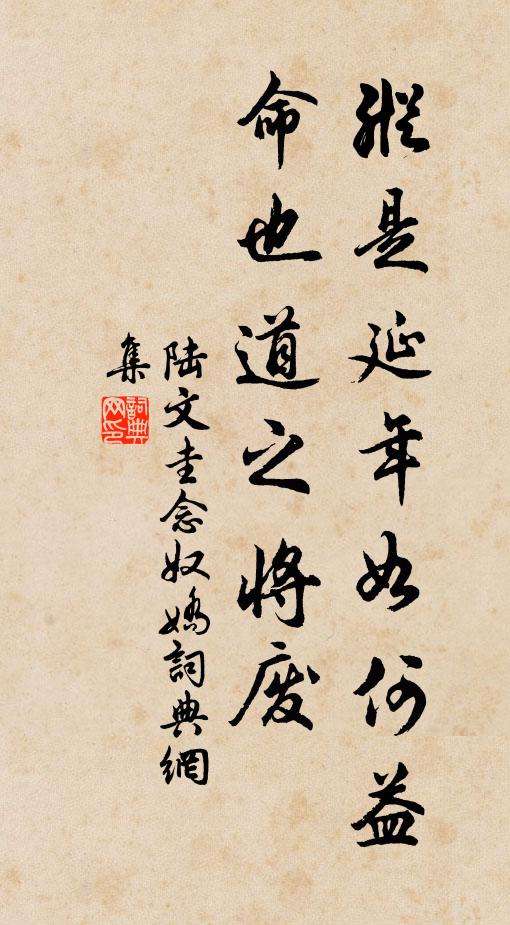 縱是延年如何益
命也道之將废
陆文圭念奴嬌詞典網
集
詞典
网印